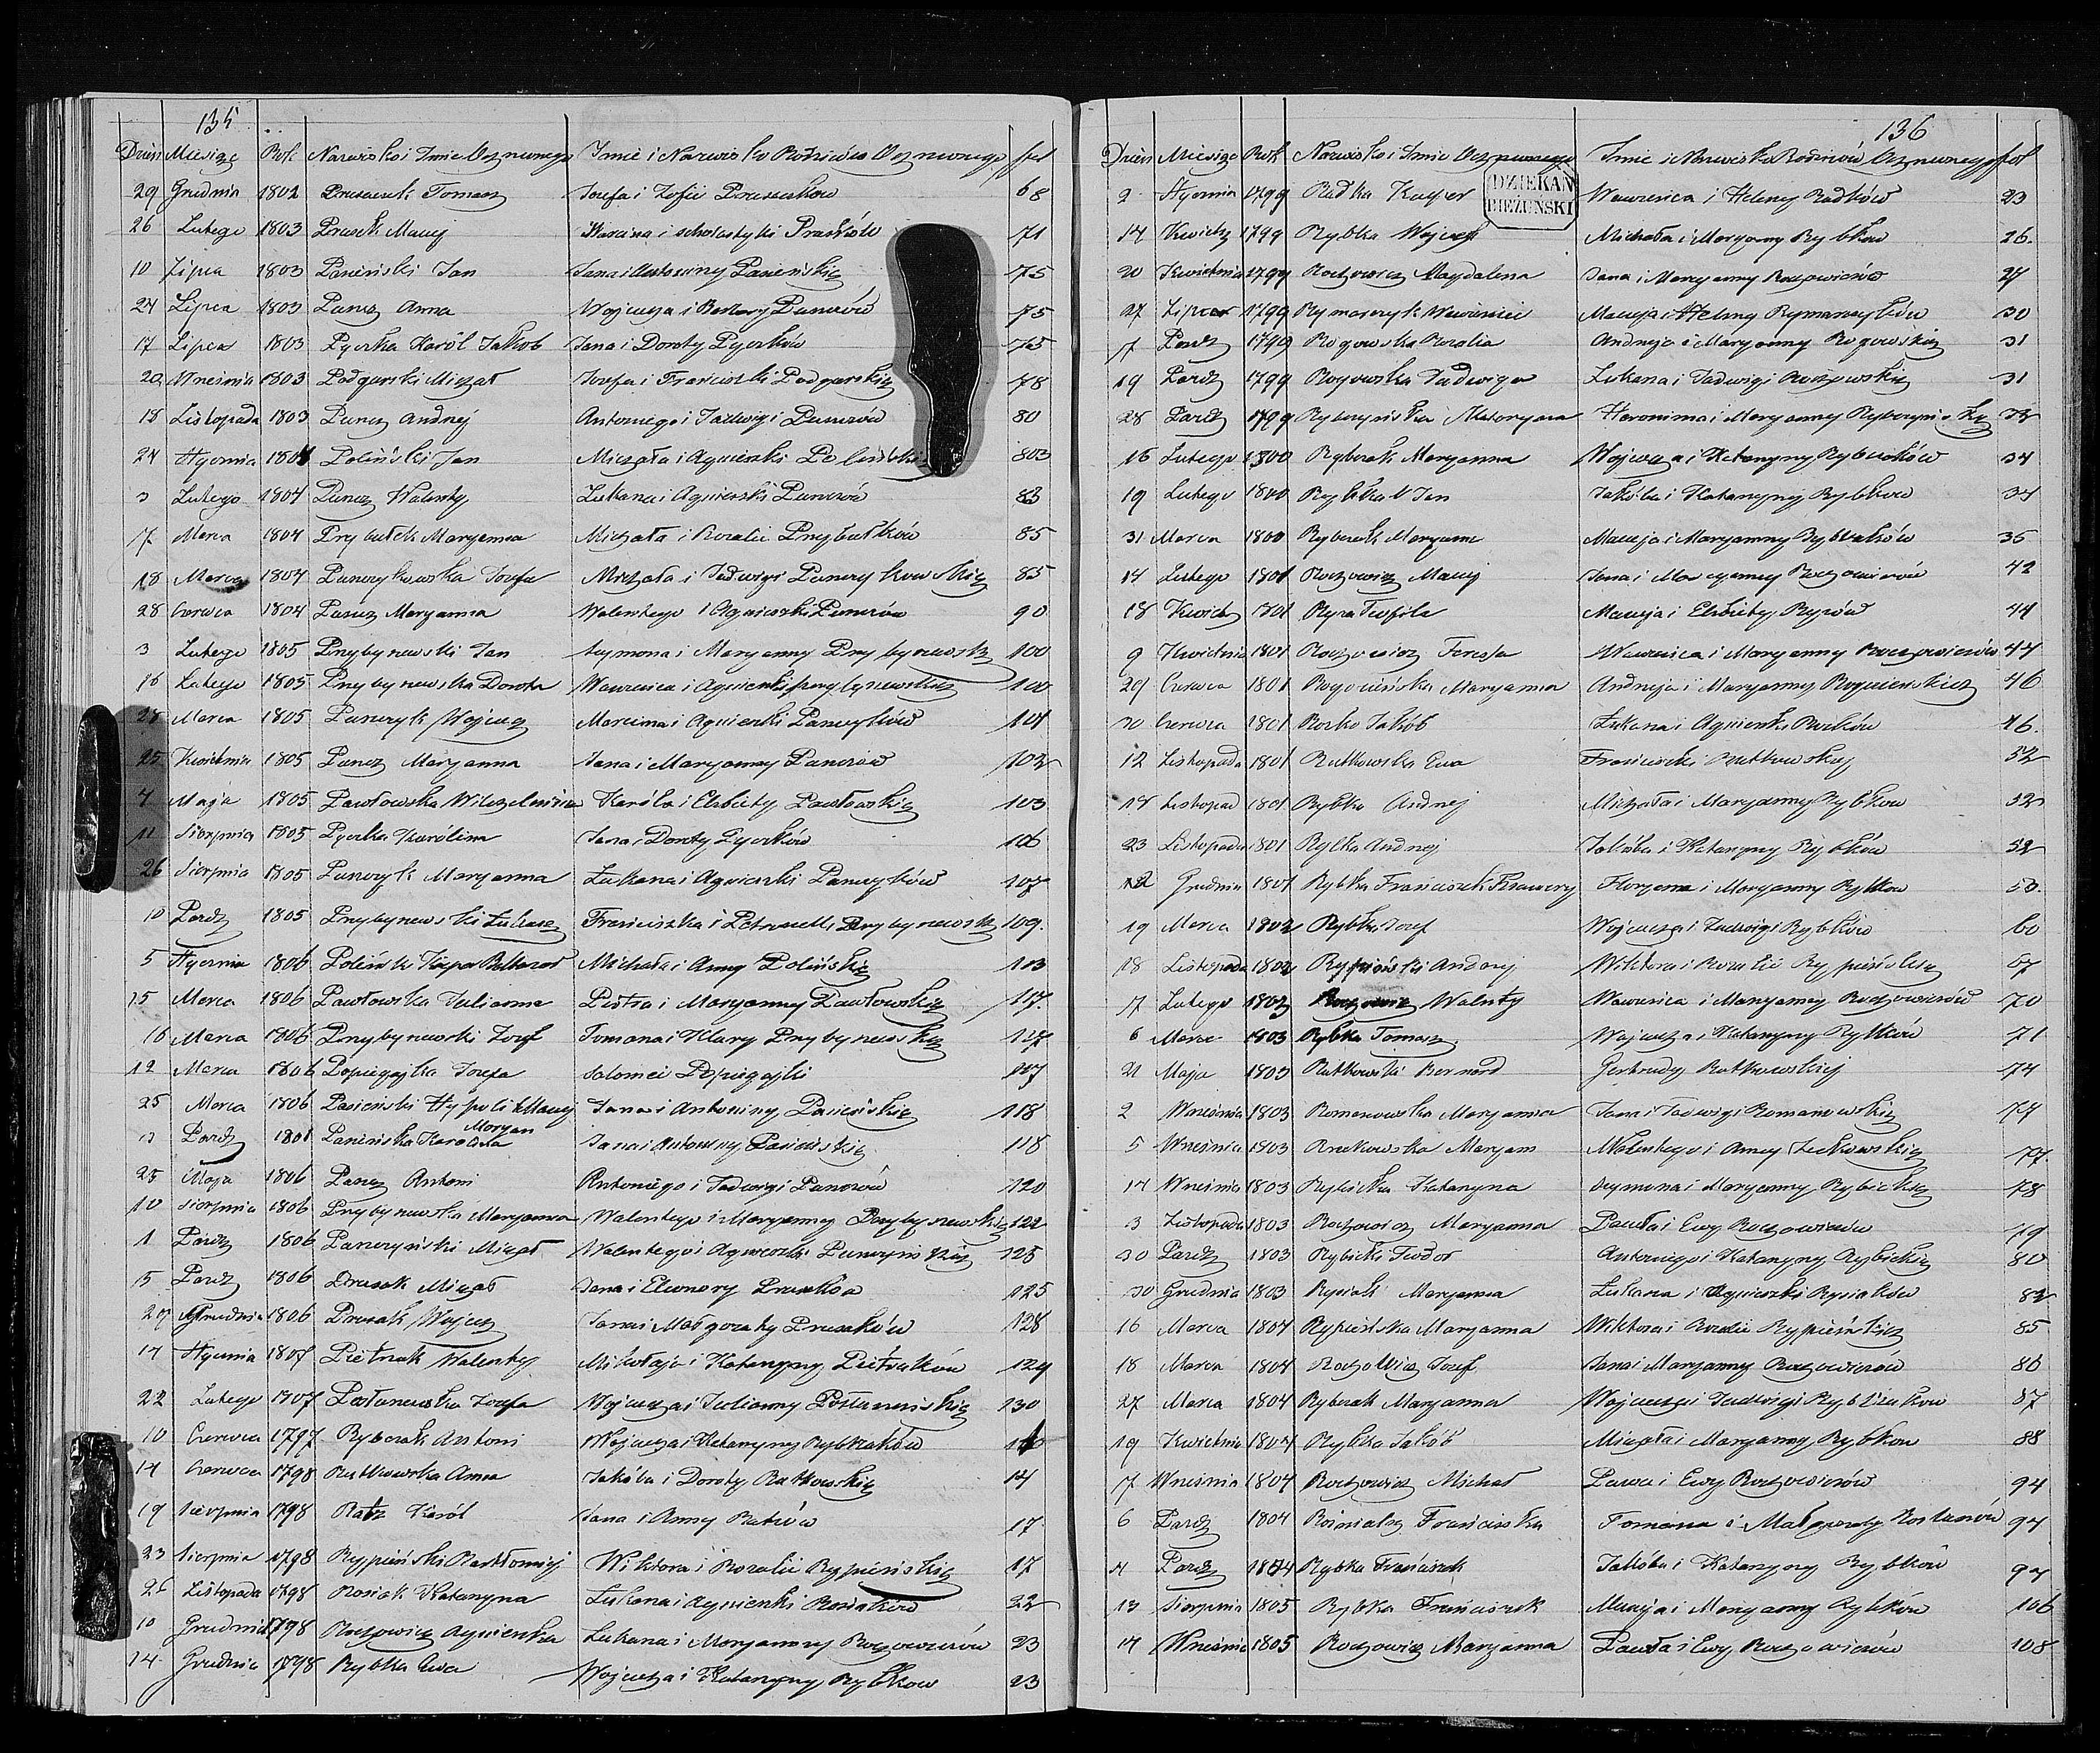 135
Dzień Miesiąc Rok Nazwisko i Imie Ocznionego Imie i Nazwisko Rodziców fol
29 Grudnia 1802 Prusaczek Tomasz Jozefa i Zofii 68
26 Lutego 1803 Prusek Maciej Marcina i scholastyki Prusków 71
10 Lipca 1803 Jan Jana i Antoniny 75
24 Lipca 1803 Pancz Anna Wojciecha i Panczów 75
17 Lipca 1803 Pyczka Karól Jakob Jana i Doroty Pyczków 75
20 Wrzesnia 1803 Podgurski Michał Jozefa i Franciszki Podgurskich 78
18 Listopada 1803 Pancz Andrzej Antoniego i Jadwigi Panczów 80
24 Stycznia 1804 Poliński Jan Michała i Agnieszki 803
3 Lutego 1804 Pancz Walenty Łukasza i Agnieszki Panczów 83
7 Marca 1804 Przybułek Maryanna Michała i Rozalii Przybułków 85
18 Marca 1804 Panczykowska Jozefa Michała i Jadwigi Panczykowskich 85
28 Czerwca 1804 Pancz Maryanna Walentego i Agnieszki Panczów 90
3 Lutego 1805 Przybyszewski Jan Szymona i Maryanny Przybyszewskich 100
16 Lutego 1805 Przybyszewska Dorota Wawrzeńca i Agnieszki Przybyszewskich 100
28 Marca 1805 Panczyk Wojciech Marcina i Agnieszki Panczyków 101
25 Kwietnia 1805 Pancz Maryanna Jana i Maryanny Panczów 102
4 Maja 1805 Pawłowska Karóla i Elzbiety Pawłowskich 103
11 Sierpnia 1805 Pyczka Karólina Jana i Doroty Pyczków 106
26 Sierpnia 1805 Panczyk Maryanna Łukasza i Agnieszki Panczyków 107
10 Pazdz 1805 Przybyszewski Łukasz Franciszka i Petroneli Przybyszewsk 109
5 Stycznia 1806 Michała i Anny Polińskich 113
15 Marca 1806 Pawłowska Julianna Piotra i Maryanny Pawłowskich 117
16 Marca 1806 Przybyszewski Jozef Tomasza i Klary Przybyszewskich
12 Marca 1806 Popiegajka Jozefa Salomei Popiegajki 117
25 Marca 1806 Jana i Antoniny 118
Maryan
Pazdz Jana i Antoniny 118
25 Maja 1806 Pancz Antoni Antoniego i Jadwigi Panczów 120
10 Sierpnia 1806 Przybyszewska Maryanna Walentego i Maryanny Przybyszewskich 122
1 Pazdz 1806 Panczyński Michał Walentego i Agnieszki Panczyńskich 125
15 Pazdz 1806 Prusak Michał Jana i Eleonory Prusaków 125
27 Grudnia 1806 Prusak Wojciech Jana i Małgorzaty Prusaków 128
14 Stycznia 1807 Pietrzak Walenty Mikołaja i Katarzyny Pietrzaków 129
22 Lutego 1807 Jozefa Wojciecha i Julianny 130
10 Czerwca 1797 Rybczak Antoni Wojciecha i Katarzyny Rybczaków
14 Czerwca 1798 Rutkowska Anna Jakóba i Doroty Rutkowskich 14
19 Sierpnia 1798 Ratz Karól Jana i Anny Ratzów 17
23 Sierpnia 1798 Rypiński Bartłomiej Wiktora i Rozalii Rypińskich 17
26 Listopada 1798 Rosiak Katarzyna Łukasza i Agnieszki Rosiaków 22
10 Grudnia 1798 Roczowicz Agnieszka Łukasza i Maryanny Roczowiczów 23
14 Grudnia 1798 Rybka Ewa Wojciecha i Katarzyny Rybkow 23
136
Dzień Miesiąc Rok Nazwisko i Imie Imie i Nazwiska Rodziców fol
DZIEKAN BIEŻUŃSKI
2 Stycznia 1799 Radka Kacper Wawrzeńca i Heleny Radków 23
14 Kwietn 1799 Rybka Wojciech Michała i Maryanny Rybkow 26
20 Kwietnia 1799 Roczowicz Magdalena Jana i Maryanny Roczowiczów 27
27 Lipca 1799 Rymarczyk Wawrzeniec Macieja i Heleny Rymarczyków 30
7 Pazdz 1799 Rogowska Rozalia Andrzeja i Maryanny Rogowskich 31
19 Pazdz 1799 Rogowska Jadwiga Łukasza i Jadwigi Rogowskich 31
28 Pazdz 1799 Rybczyńska Maryanna Hieronima i Maryanny Rybczyńskich
16 Lutego 1800 Rybczak Maryanna Wojciecha i Katarzyny Rybczaków 34
19 Lutego 1800 Rybka Jan Jakóba i Katarzyny Rybkow 34
31 Marca 1800 Rybczak Maryanna Macieja i Maryanny Rybczaków 35
14 Lutego 1801 Roczowicz Maciej Jana i Maryanny Roczowiczów 42
18 Kwietn 1801 Ryza Teofila Macieja i Elzbiety Ryzów 44
9 Kwietnia 1801 Roczowicz Teresa Wawrzeńca i Maryanny Roczowiczów 44
29 Czerwca 1801 Maryanna Andrzeja i Maryanny 46
30 Czerwca 1801 Jakób Łukasza i Agnieszki 46
12 Listopada 1801 Rutkowska Ewa Franciszki Rutkowskiej 52
18 Listopad 1801 Rybka Andrzej Michała i Maryanny Rybkow 52
23 Listopada 1801 Rybka Andrzej Jakóba i Katarzyny Rybków 52
12 Grudnia 1801 Rybka Franciszek Ksawery Floryana i Maryanny Rybkow 53
19 Marca 1802 Rybka Jozef Wojciecha i Jadwigi Rybków 60
18 Listopada 1802 Rypiński Andrzej Wiktora i Rozalii Rypińskich 67
7 Lutego Roczowicz Walenty Wawrzeńca i Maryanny Roczowiczów 70
6 Marca 1803 Rybka Tomasz Wojciecha i Katarzyny Rybków 71
21 Maja 1803 Rutkowski Bernard Gertrudy Rutkowskiej 74
2 Wrzesnia 1803 Romanowska Maryanna Jana i Jadwigi Romanowskich 77
5 Wrzesnia 1803 Maryanna Walentego i Anny 77
14 Wrzesnia 1803 Rybicka Katarzyna Szymona i Maryanny Rybickich 78
3 Listopada 1803 Roczowicz Maryanna Pawła i Ewy Roczowiczów 79
30 Pazdz 1803 Rybicki Teodor Antoniego i Katarzyny Rybickich 80
30 Grudnia 1803 Rysiak Maryanna Łukasza i Agnieszki Rysiaków 82
16 Marca 1804 Rypińska Maryanna Wiktora i Rozalii Rypińskich 85
18 Marca 1804 Roczowicz Jozef Jana i Maryanny Roczowiczów 86
27 Marca 1804 Rybczak Maryanna Wojciecha i Jadwigi 87
19 Kwietnia 1804 Rybka Jakób Michała i Maryanny Rybkow 88
7 Wrzesnia 1804 Roczowicz Michał Pawła i Ewy Roczowiczów 94
6 Pazdz 1804 Franciszka Tomasza i Małgorzaty 94
4 Pazdz 1804 Rybka Franciszek Jakóba i Katarzyny Rybków 97
13 Sierpnia 1805 Rybka Franciszek Macieja i Maryanny Rybków 106
14 Wrzesnia 1805 Roczowicz Maryanna Pawła i Ewy Roczowiczów 108